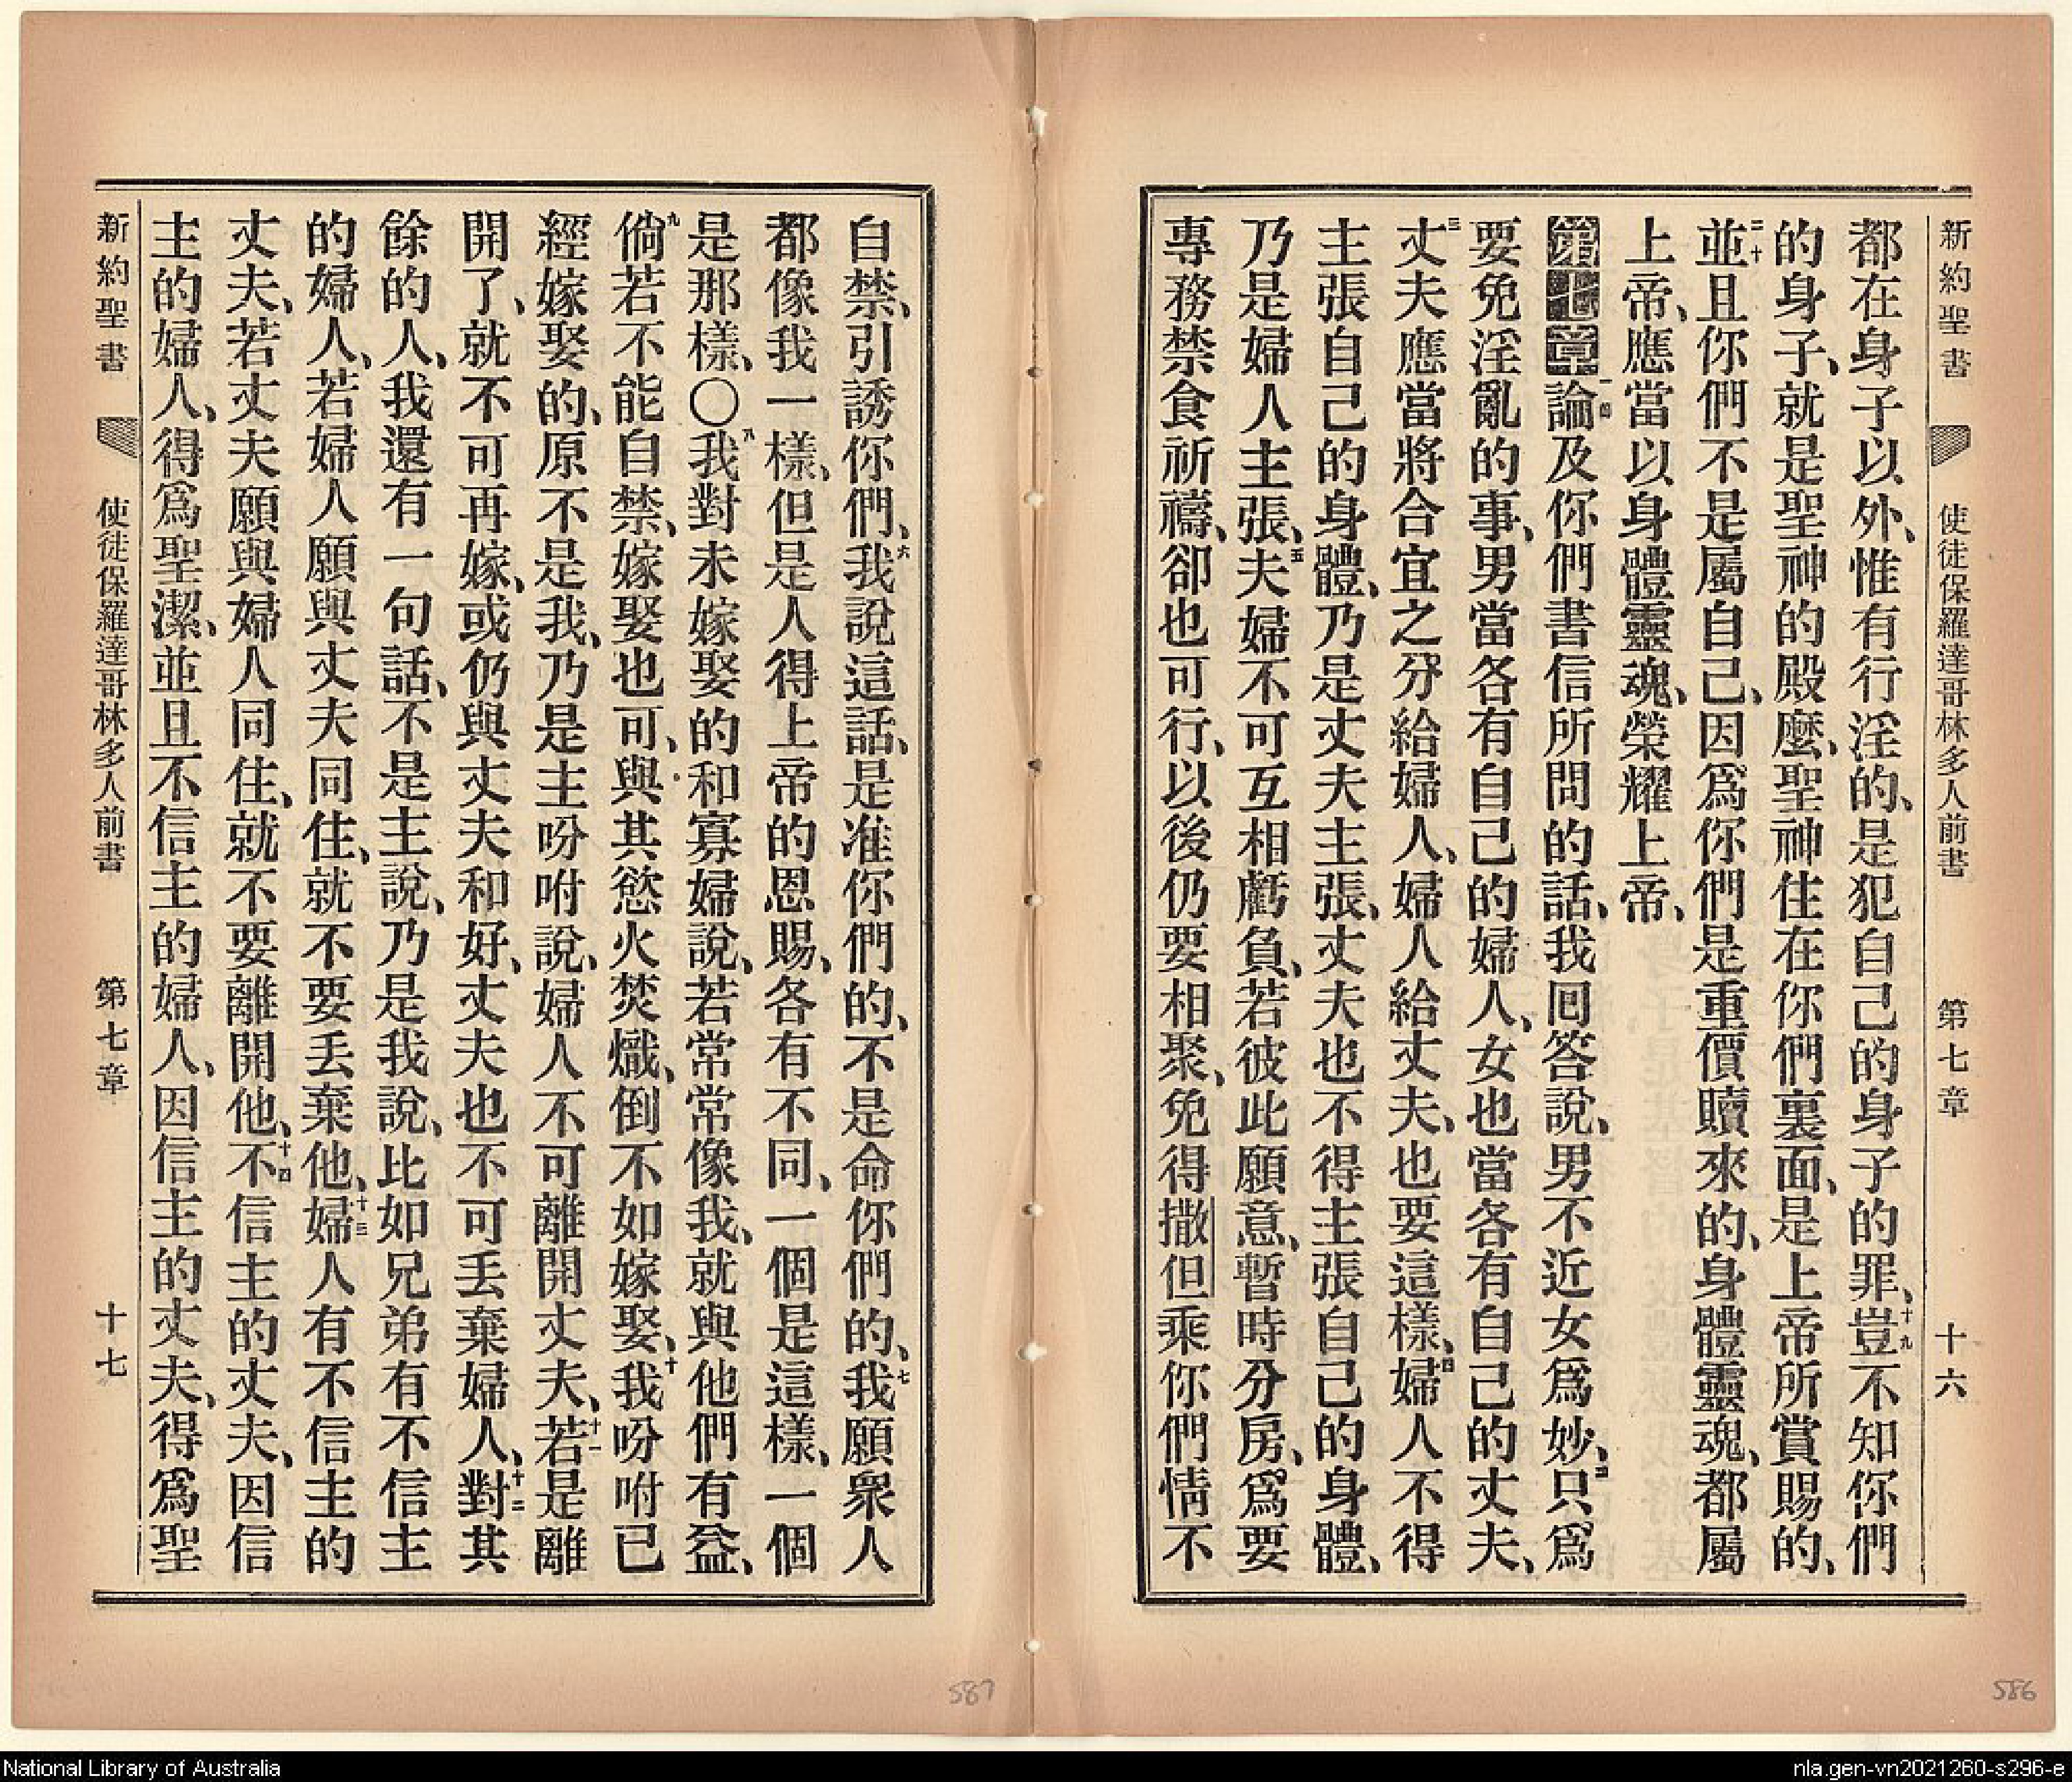 新約聖書 使徒保羅達哥林多人前書 第七章 十六
都在身子以外、惟有行淫的、是犯自己的身子的罪、十九豈不知你們
的身子、就是聖神的殿麼、聖神住在你們裏面、是上帝所賞賜的、
二十並且你們不是屬自己、因爲你們是重價贖來的、身體靈魂、都屬
上帝、應當以身體靈魂、榮耀上帝、
第七章一論及你們書信所問的話、我回答說、男不近女爲妙、二只爲
要免淫亂的事、男當各有自己的婦人、女也當各有自己的丈夫、
三丈夫應當將合宜之分給婦人、婦人給丈夫、也要這樣、四婦人不得
主張自己的身體、乃是丈夫主張、丈夫也不得主張自己的身體、
乃是婦人主張、五夫婦不可互相虧負、若彼此願意、暫時分房、爲要
專務禁食祈禱、卻也可行、以後仍要相聚、免得撒但乘你們情不
自禁、引誘你們、六我說這話、是准你們的、不是命你們的、七我願衆人
都像我一樣、但是人得上帝的恩賜、各有不同、一個是這樣、一個
是那樣、〇八我對未嫁娶的和寡婦說、若常常像我、就與他們有益、
九倘若不能自禁、嫁娶也可、與其慾火焚熾、倒不如嫁娶、十我吩咐已
經嫁娶的、原不是我、乃是主吩咐說、婦人不可離開丈夫、十一若是離
開了、就不可再嫁、或仍與丈夫和好、丈夫也不可丟棄婦人、十二對其
餘的人、我還有一句話、不是主說、乃是我說、比如兄弟有不信主
的婦人、若婦人願與丈夫同住、就不要丟棄他、十三婦人有不信主的
丈夫、若丈夫願與婦人同住、就不要離開他、十四不信主的丈夫、因信
主的婦人、得爲聖潔、並且不信主的婦人、因信主的丈夫、得爲聖
新約聖書 使徒保羅達哥林多人前書 第七章 十七
587
586
National Library of Australia
nla.gen-vn2021260-s296-e